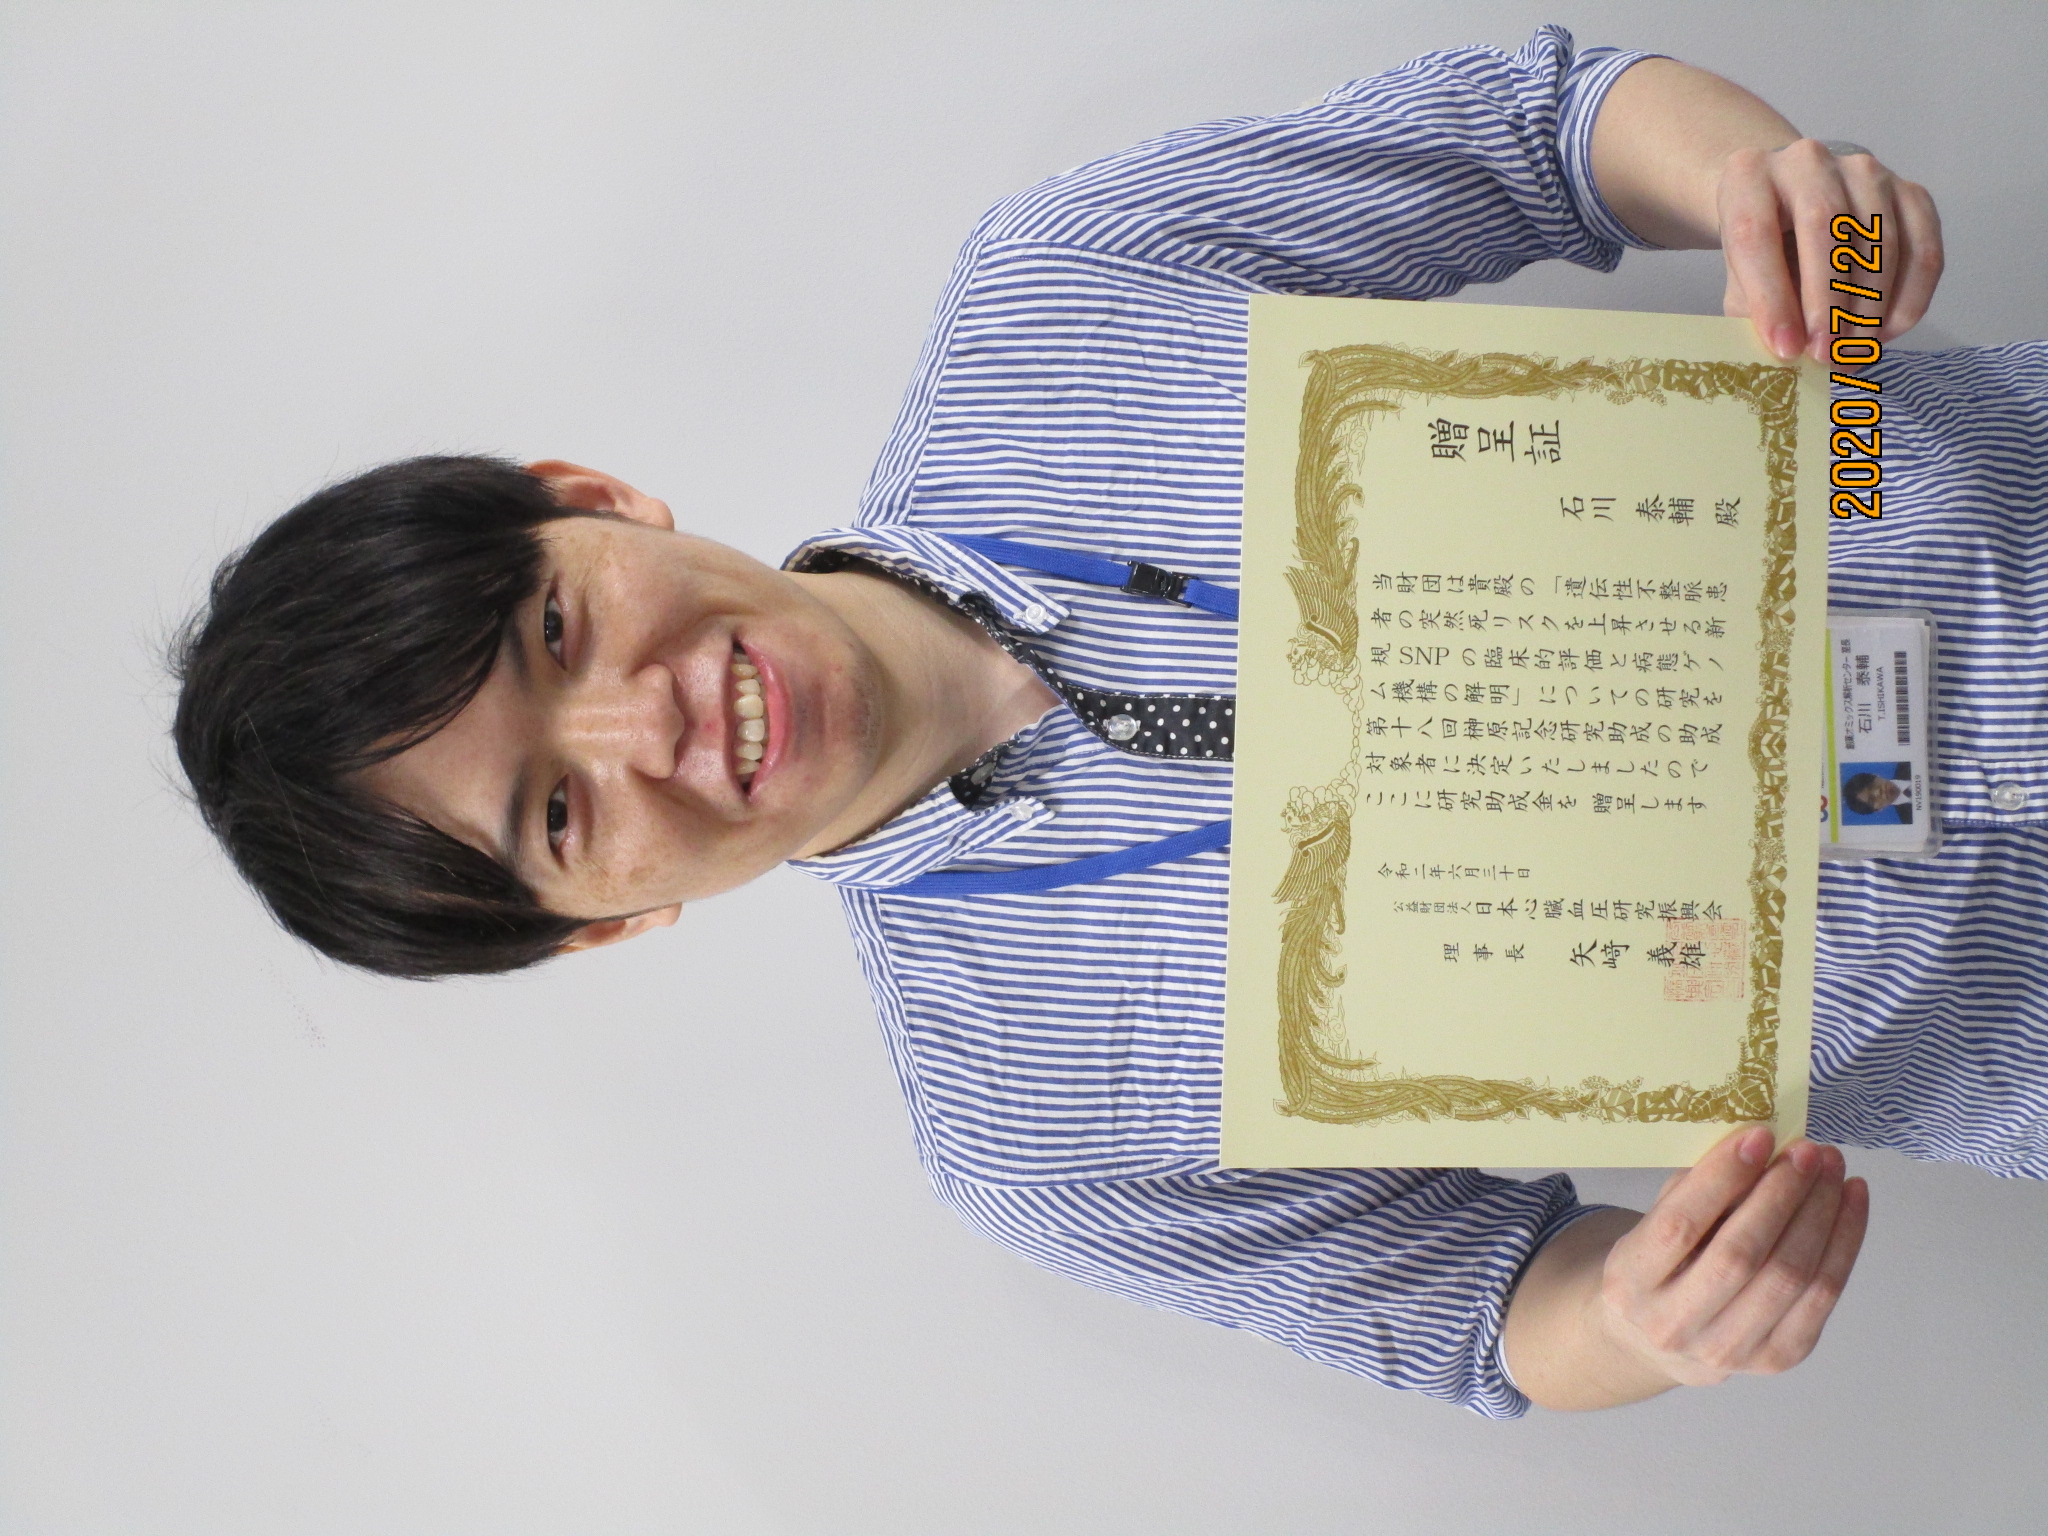 贈呈証
石川 泰輔 殿
当財団は貴殿の「遺伝性不整脈患
者の突然死リスクを上昇させる新
規SNPの臨床的評価と病態ゲノ
ム機構の解明」についての研究を
第十八回榊原記念研究助成の助成
対象者に決定いたしましたので
ここに研究助成金を贈呈します
令和二年六月三十日
公益財団法人日本心臓血圧研究振興会
理事長 矢﨑 義雄
創薬オミックス解析センター 室長
石川 泰輔
T.ISHIKAWA
NV190019
2020/07/22